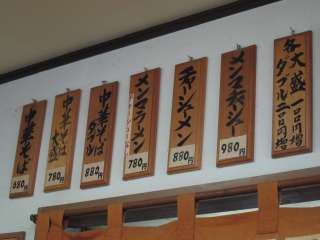 中華そば
680円
中華そば
大盛
780円
中華そば
ダブル
880円
メンマラーメン
780円
チャーシューメン
880円
メンマチャーシュー
980円
各大盛 一〇〇円増
ダブル 二〇〇円増